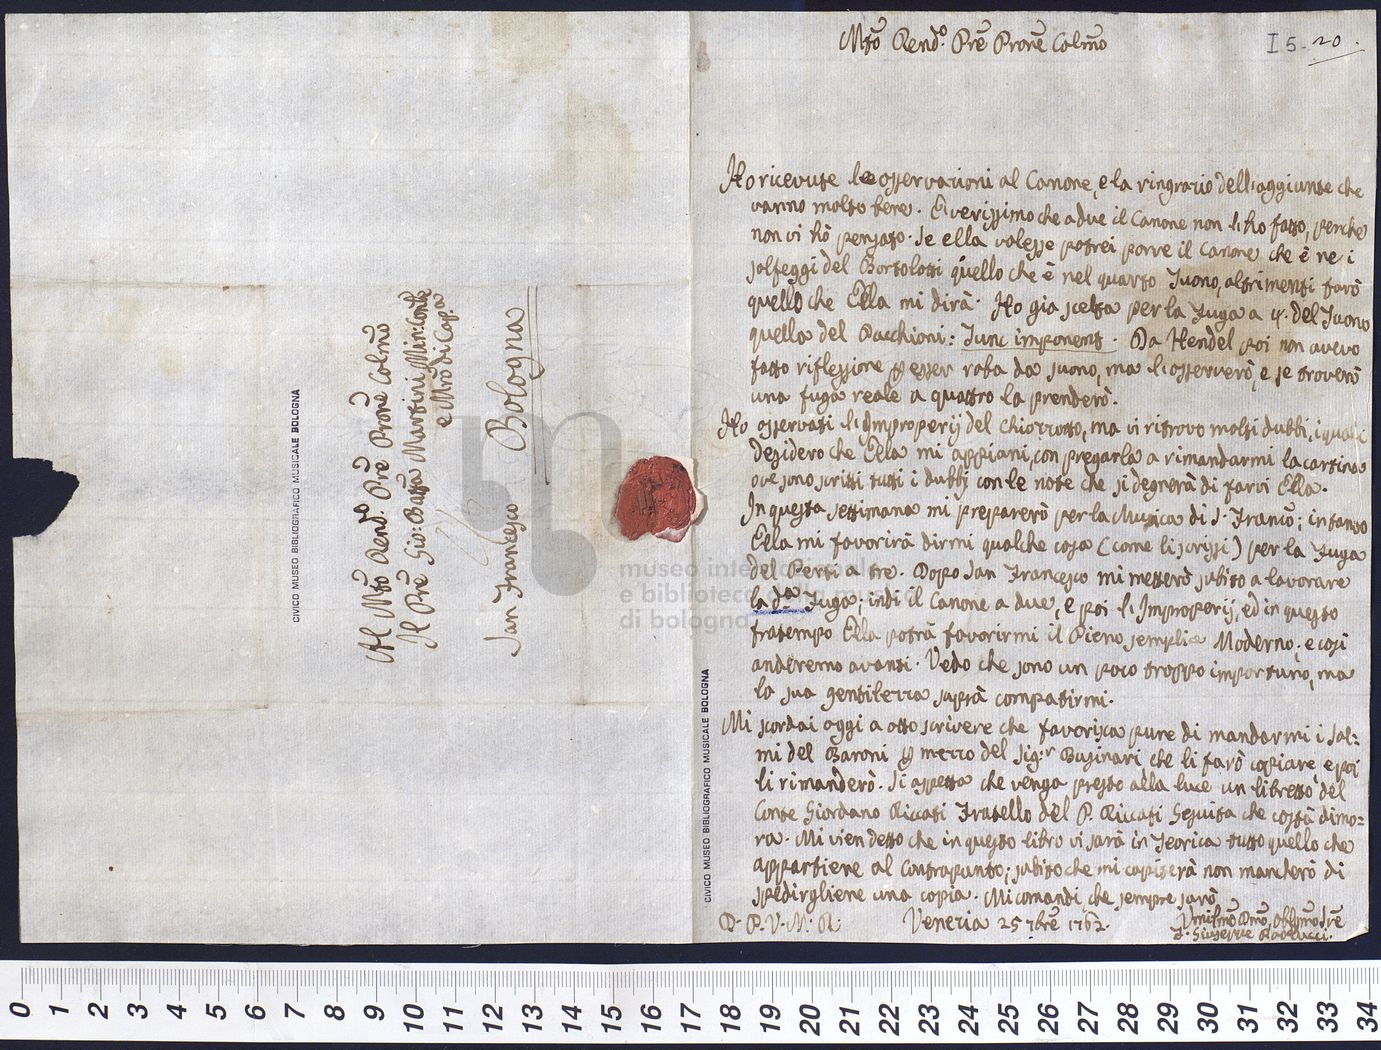 Al Mtõ Rend.º Prẽ Pronẽ Colmõ
Il Prẽ Gio: Batta Martini Min: Contle
e Mrõ di Cap.ª
Bologna
San Francesco
CIVICO MUSEO BIBLIOGRAFICO MUSICALE BOLOGNA
museo internazionale
e biblioteca della musica
di bologna
CIVICO MUSEO BIBLIOGRAFICO MUSICALE BOLOGNA
I 5-20.
Mtõ Rend.º Prẽ Pronẽ Colmõ
Ho ricevute le osservazioni al Canone, e la ringrazio dell'aggiunte che
vanno molto bene. È verissimo che a due il Canone non l'ho fatto, perche
non vi hò pensato. Se ella volesse potrei porre il Canone che è ne i
solfeggi del Bortolotti quello che è nel quarto Tuono, altrimenti farò
quello che Ella mi dirà. Ho gia scelta per la Fuga a 4. del Tuono
quella del Pacchioni: Tunc imponent. Da Hendel poi non avevo
fatto riflessione p esser roba da suono, ma l'osserverò, e se troverò
una fuga reale a quattro la prenderò.
Ho osservati l'Improperij del Chiozzotto, ma vi ritrovo molti dubbi, i quali
desidero che Ella mi appiani, con pregarla a rimandarmi la cartina
ove sono scritti tutti i dubbj con le note che si degnerà di farvi Ella.
In questa settimana mi preparerò per la Musica di S. Franco; intanto
Ella mi favorirà dirmi qualche cosa (come li scrissi) per la Fuga
del Perti a tre. Dopo San Francesco mi metterò subito a lavorare
la d.ª Fuga; indi il Canone a due, e poi l'Improperij, ed in questo
fratempo Ella potrà favorirmi il Pieno semplice Moderno; e così
anderemo avanti. Vedo che sono un poco troppo importuno, ma
la sua gentilezza saprà compatirmi.
Mi scordai oggi a otto scrivere che favorisca pure di mandarmi i Sal=
mi del Baroni p mezzo del Sig.r Businari che li farò copiare, e poi
li rimanderò. Si aspetta che venga presto alla luce un libretto del
Conte Giordano Riccati Fratello del P. Riccati Gesuita che costà dimo=
ra. Mi vien detto che in questo libro vi sarà in Teorica tutto quello che
appartiene al Contrapunto; subito che mi capiterà non mancherò di
spedirgliene una copia. Mi comandi, che sempre sarò
D. P. V. M. R. Venezia 25 7brẽ 1762.
Umilmõ Dmõ, Obblmõ Sre
F. Giuseppe Paolucci.
0 1 2 3 4 5 6 7 8 9 10 11 12 13 14 15 16 17 18 19 20 21 22 23 24 25 26 27 28 29 30 31 32 33 34